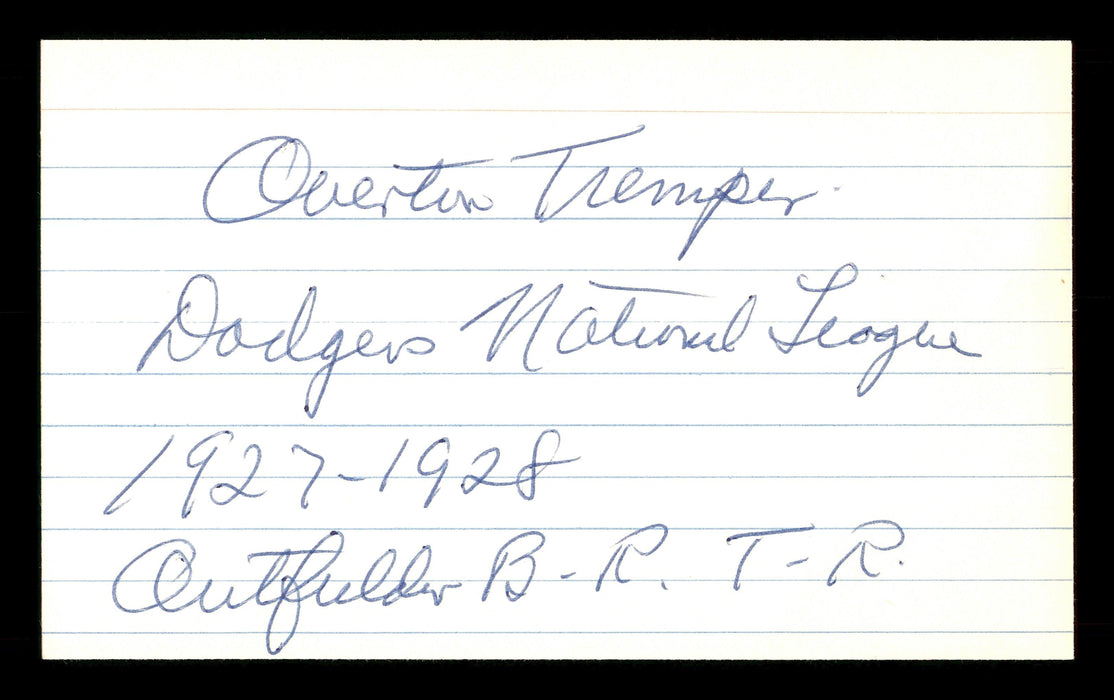 Overton Tremper.
Dodgers National League
1927-1928
Outfielder B-R. T-R.